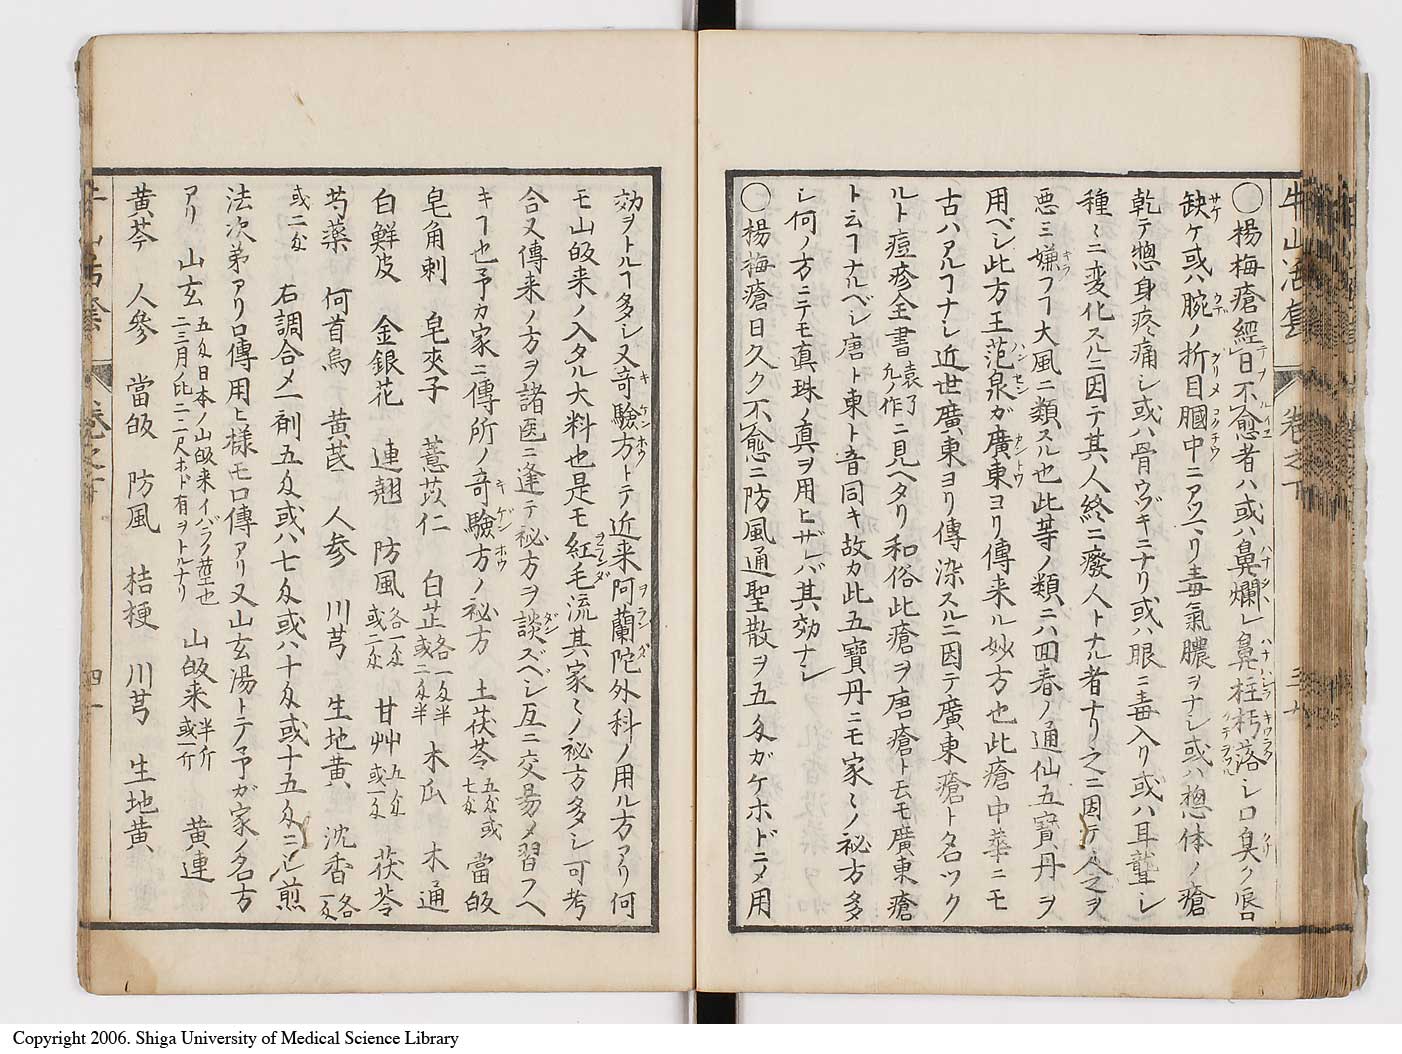 牛山活套 卷之下
〇楊梅瘡經日不愈者ハ或ハ鼻爛レ鼻柱朽落シ口臭ク唇
缺ケ或ハ腕ノ折目膕中ニアツマリ毒氣膿ヲナシ或ハ惣体ノ瘡
乾テ惣身疼痛シ或ハ骨ウヅキニナリ或ハ眼ニ毒入リ或ハ耳聾レ
種〻ニ変化スルニ因テ其人終ニ廢人トナル者ナリ之ニ因テ人之ヲ
悪ミ嫌フヿ大風ニ類スル也此等ノ類ニハ回春ノ通仙五寳丹ヲ
用ベシ此方王范泉ガ廣東ヨリ傳来ル妙方也此瘡中華ニモ
古ハアルヿナシ近世廣東ヨリ傳染スルニ因テ廣東瘡ト名ツク
ルト痘疹全書袁了凡ノ作ニ見ヘタリ和俗此瘡ヲ唐瘡ト云モ廣東瘡
ト云フナルベシ唐ト東ト音同キ故カ此五寳丹ニモ家〻ノ秘方多
シ何ノ方ニテモ真珠ノ真ヲ用ヒザバ其効ナシ
〇楊梅瘡日久ク不愈ニ防風通聖散ヲ五匁ガケホドニメ用
効ヲトルヿ多シ又竒驗方トテ近来阿蘭陀外科ノ用ル方アリ何
モ山皈来ノ入タル大料也是モ紅毛流其家〻ノ秘方多シ可考
合又傳来ノ方ヲ諸医ニ逢テ秘方ヲ談ズベシ互ニ交易メ習フヘ
キヿ也予カ家ニ傳所ノ竒驗方ノ秘方 土茯苓五匁或七匁 當皈
皂角刺 皂夾子 薏苡仁 白芷各一匁半或二匁半 木瓜 木通
白鮮皮 金銀花 連翹 防風各一匁或二匁 甘艸五匁或一匁 茯苓
芍薬 何首烏 黄芪 人参 川芎 生地黄 沈香各一匁
或二匁 右調合メ一剤五匁或ハ七匁或ハ十匁或十五匁ニシ煎
法次第アリ口傳用ヒ様モ口傳アリ又山玄湯トテ予ガ家ノ名方
アリ 山玄五匁日本ノ山皈来イバラノ莖也二三月比二二尺ホド有ヲトルナリ 山皈来半斤或一斤 黄連
黄芩 人參 當皈 防風 桔梗 川芎 生地黄
牛山活套 卷之下 四十一